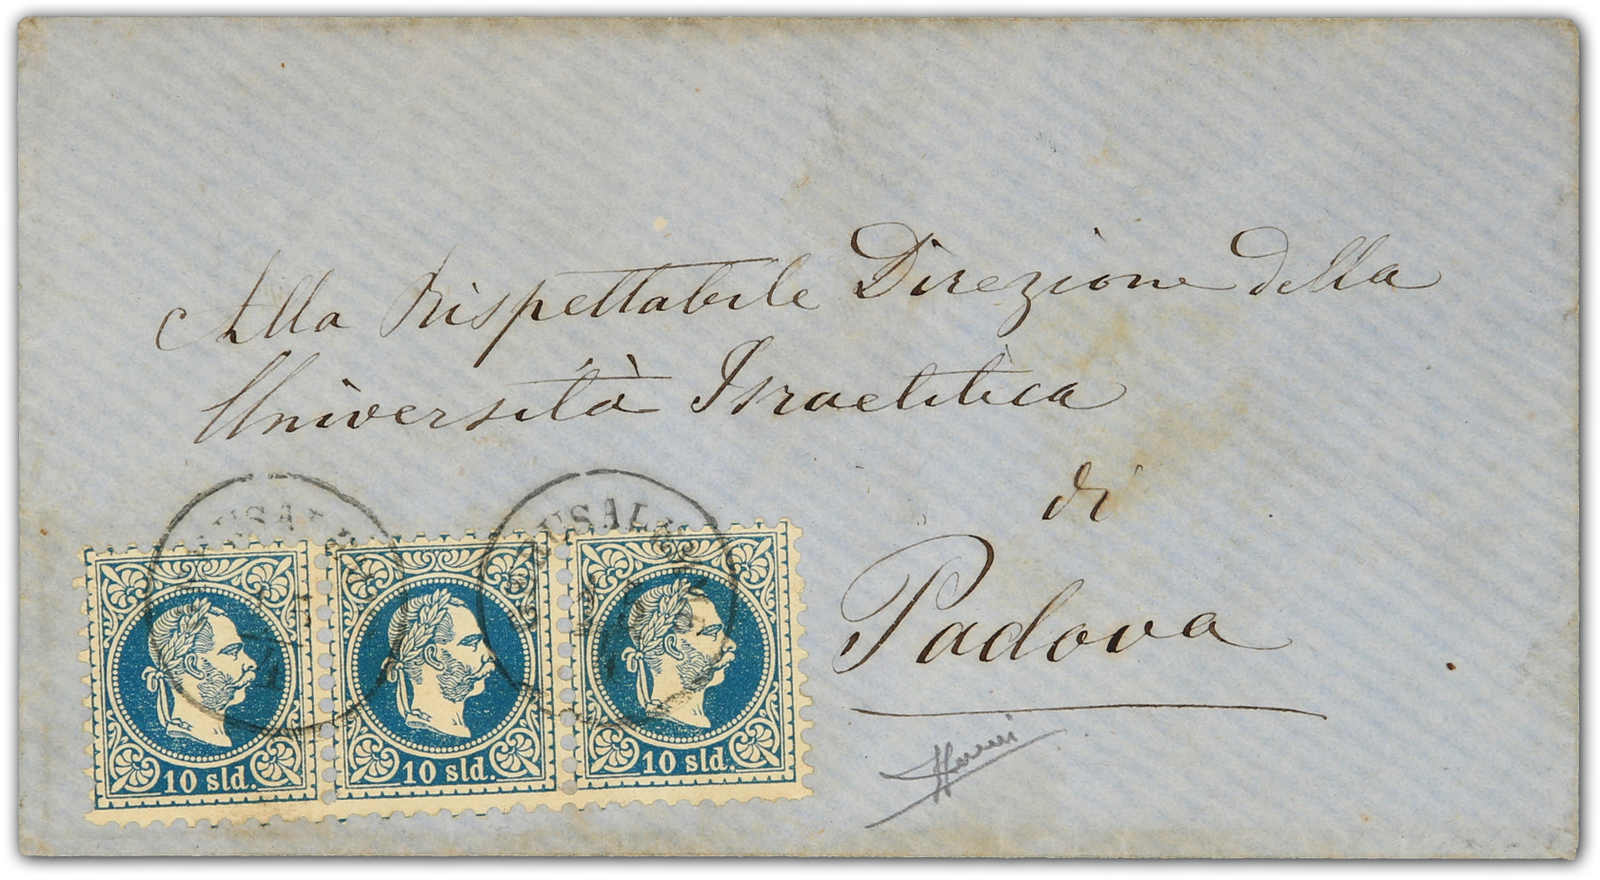 Alla Rispettabile Direzione della
Università Israelitica
di
Padova
10 sld.
10 sld.
10 sld.